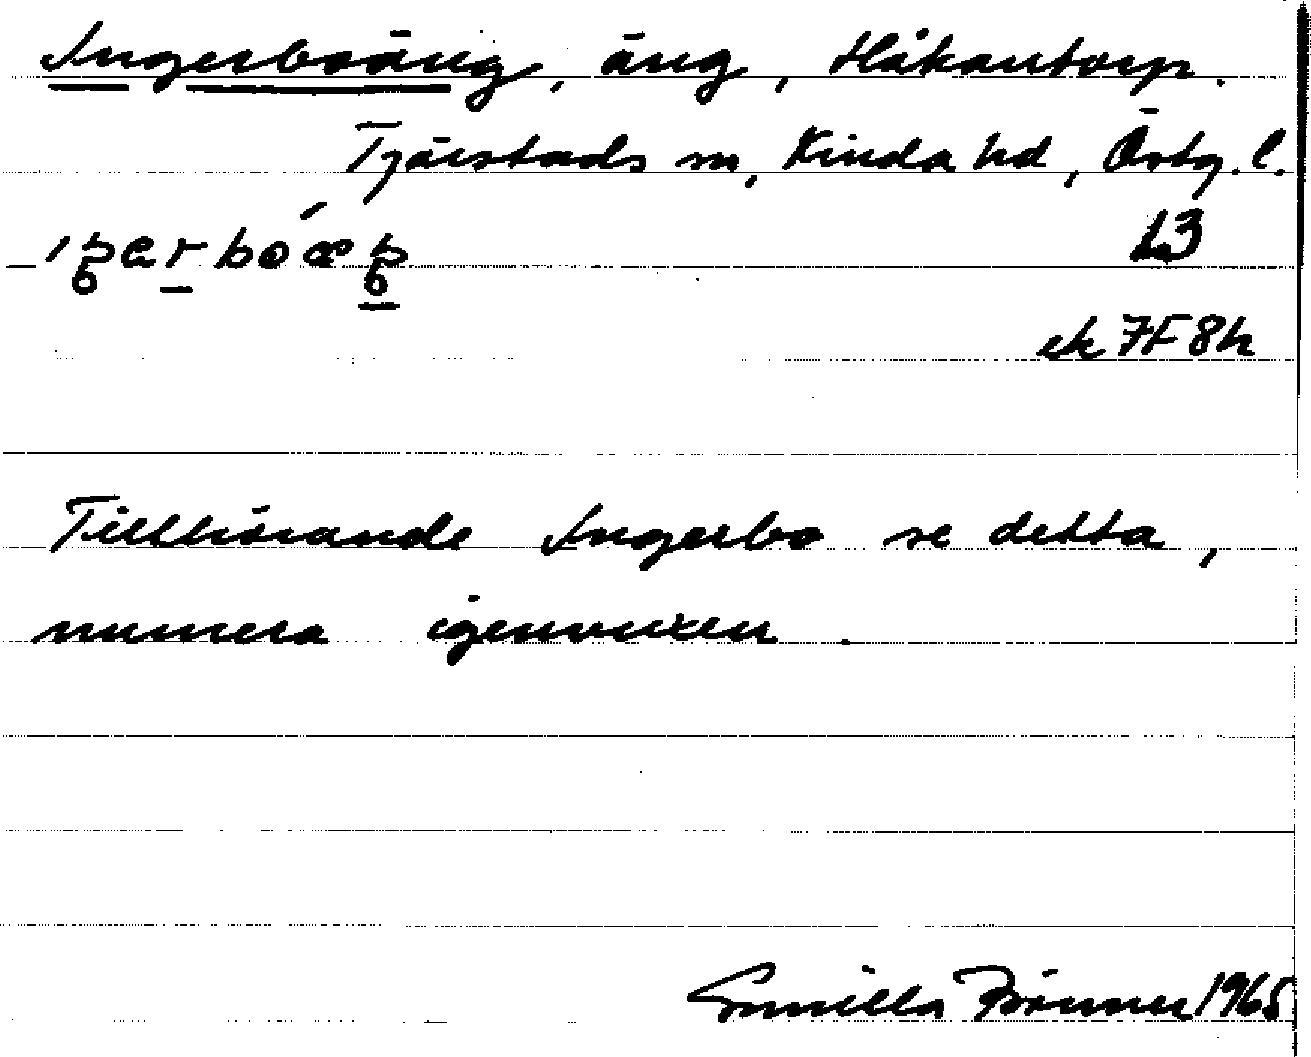 Ingerboäng, äng, Håkantorp.
Tjärstads sn, Kinda hd, Östg. l.
L3
ek 7F8h
Tillhörande Ingerbo se detta,
numera igenvuxen.
Gunilla 1965